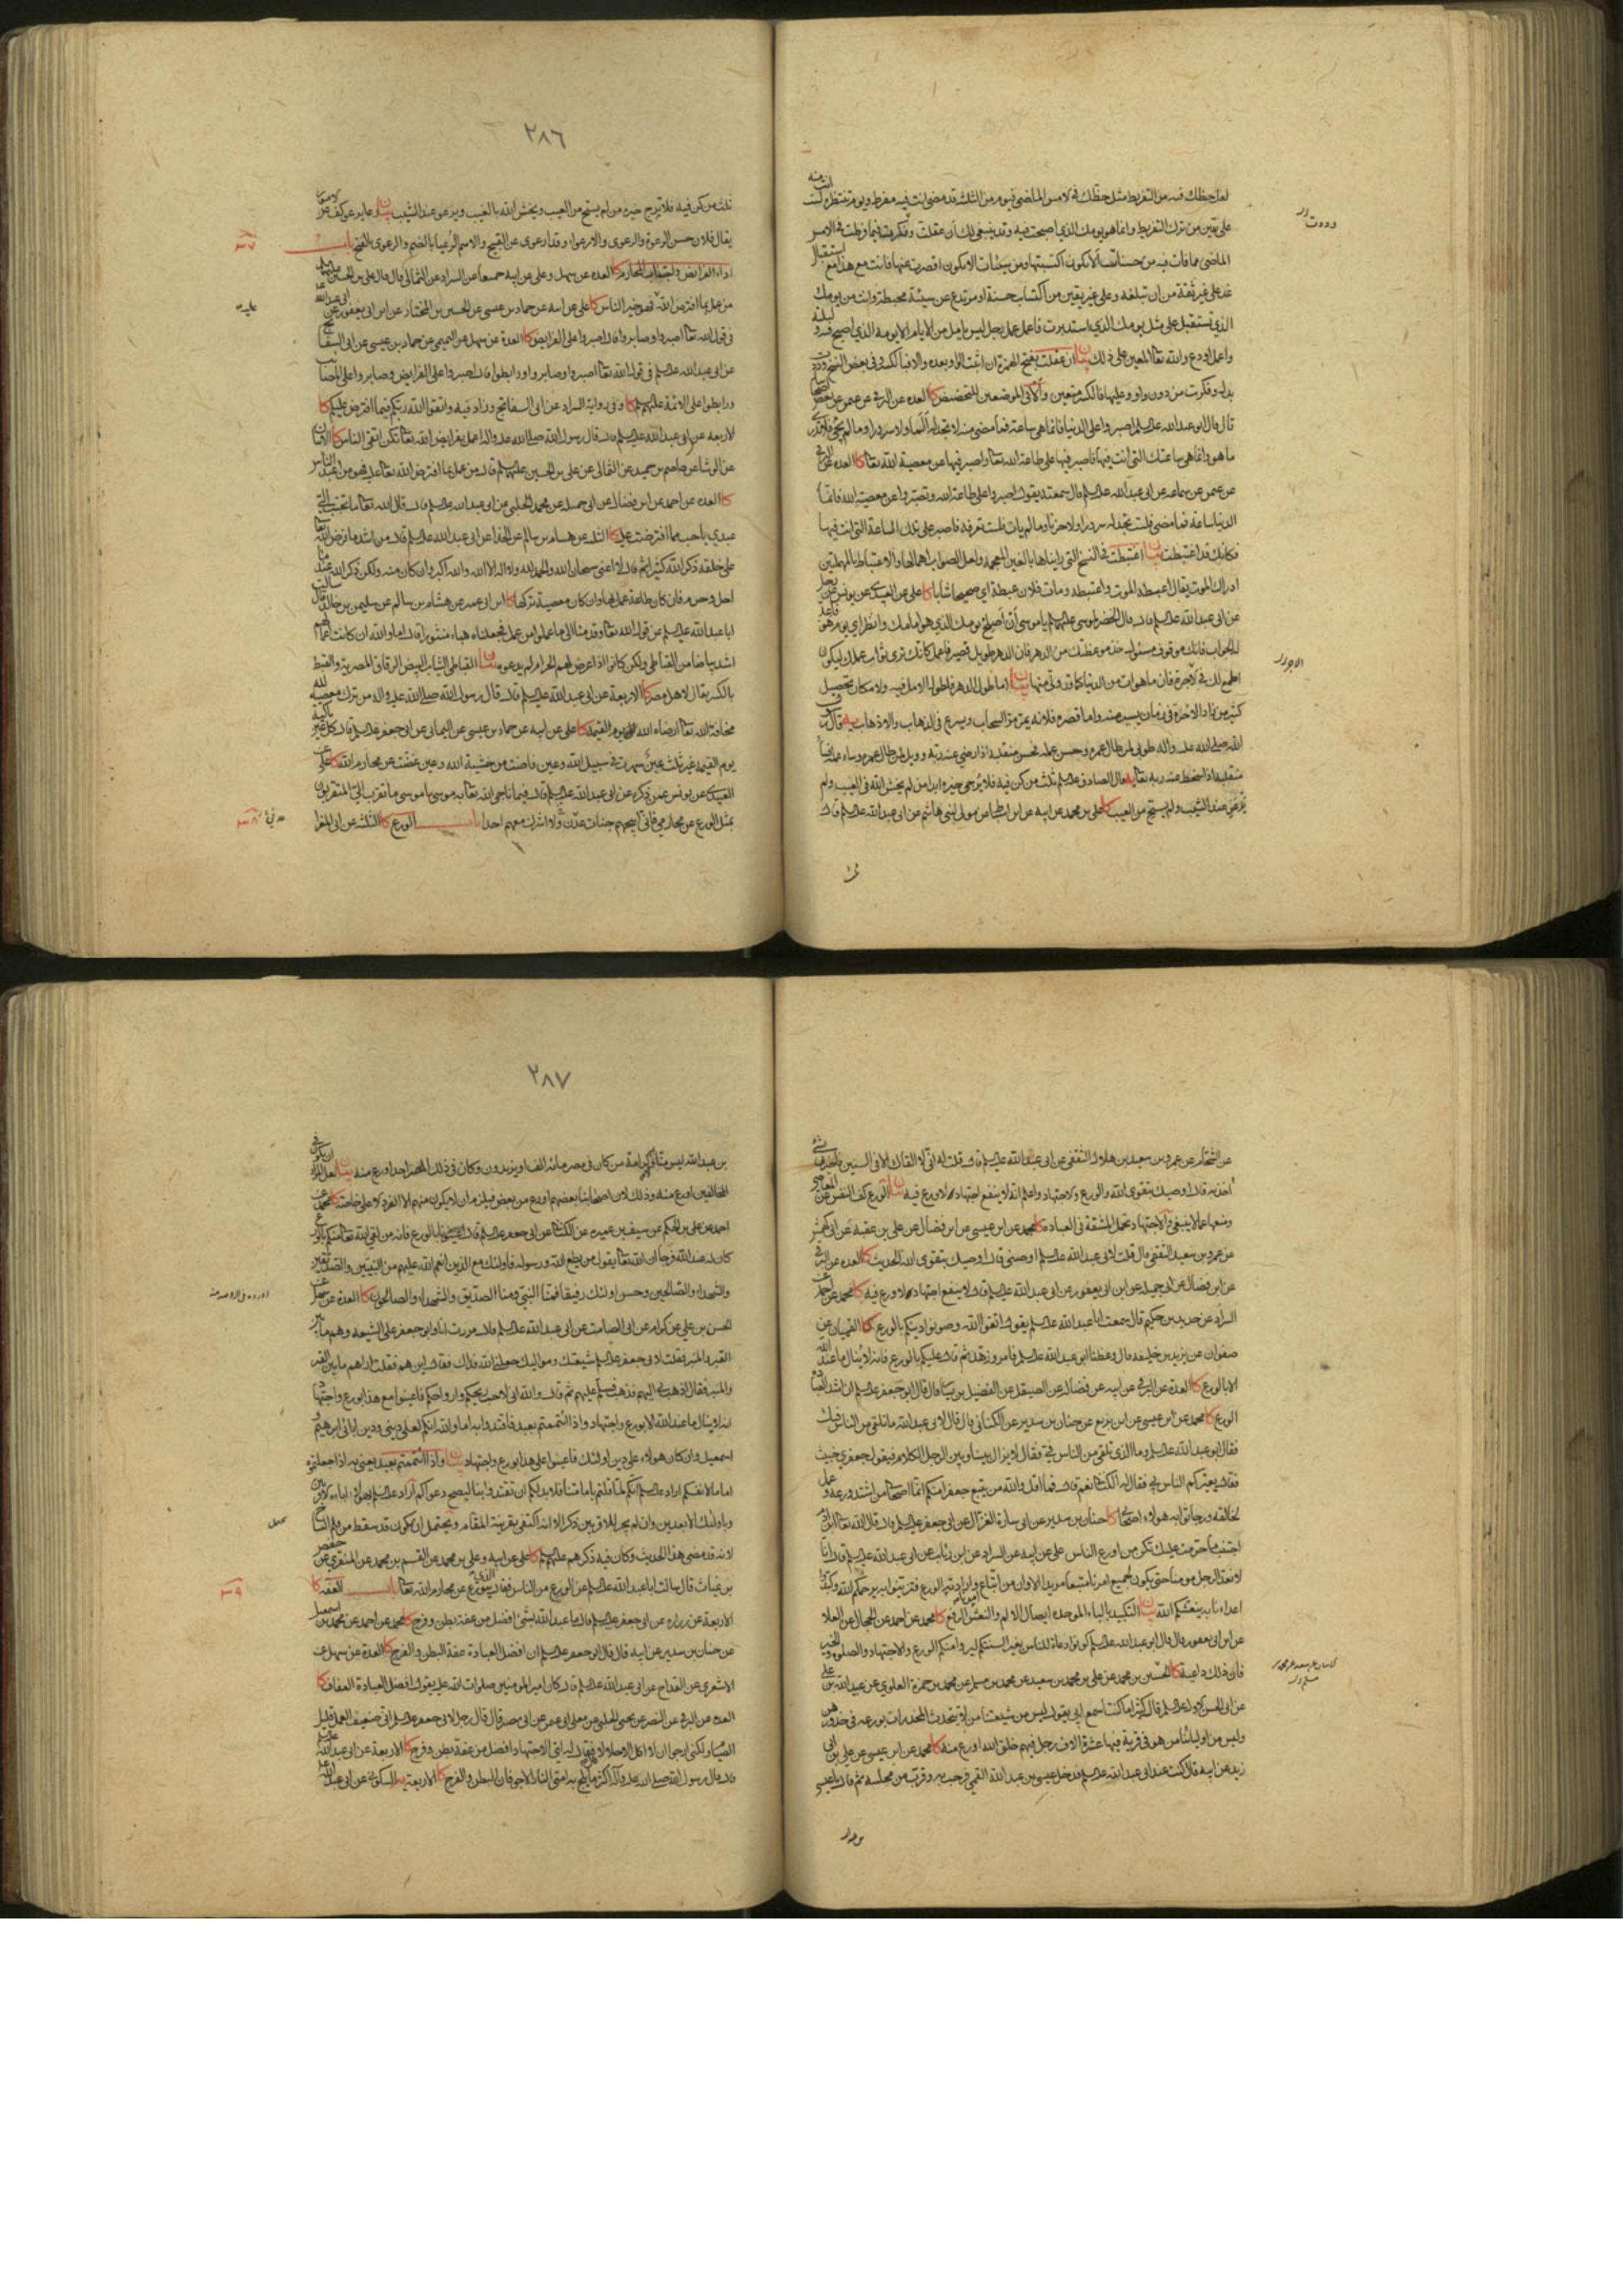 لعل حظك فيه من التفريط مثل حظك في الامس الماضي فيوم من الثلثة قد مضى انت فيه مفرط ويوم تنتظره لست
انت منه
على يقين من ترك التفريط وانما هو يومك الذي اصبحت فيه وقد ينبغي لك ان عقلت وفكرت فيما فرطت في الامس
الماضي مما فاتك فيه من حسنات الا تكون اكتسبتها ومن سيئات الا تكون اقصرت عنها فانت مع هذا مع استقبال
غد على غير ثقة من ان تبلغه وعلى غير يقين من اكتساب حسنة او مرتدع عن سيئة محبطة وانت من يومك
الذي تستقبل على مثل يومك الذي استدبرت فاعمل عمل رجل ليس يامل من الايام الا يومه الذي اصبح فيه وليلته
واعمل او دع والله تعالى المعين على ذلك بيان ان عقلت بفتح الهمزة ان اثبت الواو بعده والا فبالكسر وفي بعض النسخ وددت
بدل وفكرت من دون واو وعليها فالكسر متعين والا في الموضعين للتحضيض كا العدة عن البرقي عن عن بعض اصحابنا
قال قال ابو عبد الله عليه السلم اصبروا على الدنيا فانما هي ساعة فما مضى منه لا تجد له الما ولا سرورا وما لم يجئ فلا تدري
ما هو وانما هي ساعتك التي انت فيها فاصبر فيها على طاعة الله تعالى واصبر فيها عن معصية الله تعالى كا العدة عن البرقي
عن عثمن عن سماعه عن ابي عبد الله عليه السلم قال سمعته يقول اصبروا على طاعة الله وتصبروا عن معصية الله فانما
الدنيا ساعة فما مضى فلست تجد له سرورا ولا حزنا وما لم يات فلست تعرفه فاصبر على تلك الساعة التي انت فيها
فكانك قد اغتبطت بيان اغتبطت في النسخ التي رايناها بالغين المعجمه ولعل الصواب اهمالها والاعتباط بالمهملتين
ادراك الموت يقال اعبطه الموت واعتبطه ومات فلان عبطة اي صحيحا شابا كا علي عن العبيدي عن يونس عن رجل
عن ابي عبد الله عليه السلم قال قال الخضر لموسى عليهما السلم يا موسى ان اصلح يوميك الذي هو امامك وانظر اي يوم هو فاعد
له الجواب فانك موقوف مسئول وخذ موعظتك من الدهر فان الدهر طويل قصير فاعمل كانك ترى ثواب عملك ليكون
اطمع لك في الاخرة فان ما هو ات من الدنيا كما قد ولى منها بيان اما طول الدهر فلطول الامل فيه ولامكان تحصيل
كثير من زاد الاخرة في زمان يسير منه واما قصره فلانه يمر مر السحاب ويسرع في الذهاب والاذهاب يه قال رسول
الله صلى الله عليه واله طوبى لمن طال عمره وحسن عمله فحسن منقلبه اذا رضي عنه ربه وويل لمن طال عمره وساء عمله فساء
منقلبه اذا سخط عنه ربه تعالى يه قال الصادق عليه السلم ثلث من كن فيه فلا يرجى خيره ابدا من لم يخش الله في الغيب ولم
يرعو عند الشيب ولم يستح من العيب كا علي بن محمد عن ابيه عن ابن اسباط عن مولى لبني هاشم عن ابي عبد الله عليه السلم قال
ثلث
وددت
٢٨٦
ثلث من كن فيه فلا يرج خيره من لم يستح من العيب ويخش الله بالغيب ويرعو عند الشيب بيان
يقال فلان حسن الرعوة والرعوى والارعواء وقد ارعوى عن القبيح والاسم الرعيا بالضم والرعوى بالفتح باب
اداء الفرائض واجتناب المحارم كا العدة عن سهل وعلي عن ابيه جميعا عن السراد عن الثمالي قال قال علي بن الحسين عليهما السلم
من عمل بما افترض الله فهو خير الناس كا علي عن ابيه عن حماد بن عيسى عن الحسين بن المختار عن ابن ابي يعفور عن ابي عبد الله
في قول الله تعالى اصبروا وصابروا قال اصبروا على الفرايض كا العدة عن سهل عن التميمي عن حماد بن عيسى عن ابي السفاتج
عن ابي عبد الله عليه السلم في قول الله تعالى اصبروا وصابروا ورابطوا قال اصبروا على الفرايض وصابروا على المصائب
ورابطوا على الائمة عليهم السلم كا وفي رواية السراد عن ابي السفاتج وزاد فيه واتقوا الله ربكم فيما افترض عليكم كا
الاربعه عن ابي عبد الله عليه السلم قال قال رسول الله صلى الله عليه واله اعمل بفرايض الله تعالى تكن اتقى الناس كا الاثنان
عن الوشا عن عاصم بن حميد عن الثمالي عن علي بن الحسين عليهما السلم قال من عمل بما افترض الله تعالى عليه فهو من اعبد الناس
كا العده عن احمد عن ابن فضال عن ابي جميله عن محمد الحلبي عن ابي عبد الله عليه السلم قال قال الله تعالى ما تحبب الي
عبدي باحب مما افترضت عليه كا الثلثة عن هشام بن سالم عن الحذا عن ابي عبد الله عليه السلم قال من اشد ما فرض الله
على خلقه ذكر الله كثيرا ثم قال لا اعني سبحان الله والحمد لله ولا اله الا الله والله اكبر وان كان منه ولكن ذكر الله عند ما
احل وحرم فان كان طاعة عمل بها وان كان معصية تركها كا ابن ابي عمير عن هشام بن سالم عن سليمن بن خالد قال سالت
ابا عبد الله عليه السلم عن قول الله تعالى وقدمنا الى ما عملوا من عمل فجعلناه هباء منثورا قال اما والله ان كانت اعمالهم
اشد بياضا من القباطي ولكن كانوا اذا عرض لهم الحرام لم يدعوه بيان القباطي الثياب البيض الرقاق المصرية والقبط
بالكسر يقال لاهل مصر كا الاربعة عن ابي عبد الله عليه السلم قال قال رسول الله صلى الله عليه واله من ترك معصية لله
مخافة الله تعالى ارضاه الله يوم القيمة كا علي عن ابيه عن حماد بن عيسى عن اليماني عن ابي جعفر عليه السلم قال كل عين باكية
يوم القيمة غير ثلث عين سهرت في سبيل الله وعين فاضت من خشية الله وعين غضت عن محارم الله كا علي عن
العبيدي عن يونس عمن ذكره عن ابي عبد الله عليه السلم قال فيما ناجى الله تعالى به موسى يا موسى ما تقرب الي المتقربون
بمثل الورع عن محارمي فاني ابيحهم جنات عدن ولا اشرك معهم احدا باب الورع كا الثلثة عن ابي المغرا
٣٧
٣٨
عن الشحام عن عمرو بن سعيد بن هلال الثقفي عن ابي عبد الله عليه السلم قال قلت له اني لا القاك الا في السنين فاخبرني بشئ
اخذ به قال اوصيك بتقوى الله والورع والاجتهاد واعلم انه لا ينفع اجتهاد لا ورع فيه بيان الورع كف النفس عن المعاصي
ومنعها عما لا ينبغي والاجتهاد تحمل المشقة في العبادة كا محمد عن ابن عيسى عن ابن فضال عن علي بن عقبة عن ابي كهمس
عن عمرو بن سعيد الثقفي قال قلت لابي عبد الله عليه السلم اوصني قال اوصيك بتقوى الله الحديث كا العدة عن البرقي
عن ابن فضال عن ابي جميله عن ابن ابي يعفور عن ابي عبد الله عليه السلم قال لا ينفع اجتهاد لا ورع فيه كا محمد عن احمد عن
السراد عن حديد بن حكيم قال سمعت ابا عبد الله عليه السلم يقول اتقوا الله وصونوا دينكم بالورع كا القميان عن
صفوان عن يزيد بن خليفه قال وعظنا ابو عبد الله عليه السلم فامر وزهد ثم قال عليكم بالورع فانه لا ينال ما عند الله
الا بالورع كا العدة عن البرقي عن ابيه عن فضاله عن الصيقل عن الفضيل بن يسار قال قال ابو جعفر عليه السلم ان اشد العبادة
الورع كا محمد عن ابن عيسى عن ابن بزيع عن حنان بن سدير عن الكناني قال قال لابي عبد الله ما نلقى من الناس فيك
فقال ابو عبد الله عليه السلم وما الذي تلقى من الناس في فقال لا يزال يبننا وبين الرجل الكلام فيقول جعفري خبيث
فقال يعيركم الناس بي فقال له الكناني نعم قال فما اقل والله من يتبع جعفرا منكم انما اصحابي من اشتد ورعه وعمل
لخالقه ورجا ثوابه هولاء اصحابي كا حنان بن سدير عن ابي سارة الغزال عن ابي جعفر عليه السلم قال قال الله تعالى ابن ادم
اجتنب ما حرمت عليك تكن من اورع الناس علي عن ابيه عن السراد عن ابن رئاب عن ابي عبد الله عليه السلم قال انا
لا نعد الرجل مومنا حتى يكون لجميع امرنا متبعا مريدا الا وان من اتباع امرنا وارادته الورع فتزينوا به يرحمكم الله وكبدوا
اعداءنا به ينعشكم الله بيان التكبيد بالباء الموحده ايصال الالم والنعش الرفع كا محمد عن احمد عن الحجال عن العلا
عن ابن ابي يعفور قال قال ابو عبد الله عليه السلم كونوا دعاة للناس بغير السنتكم ليروا منكم الورع والاجتهاد والصلوة والخير
فان ذلك داعية كا الحسين بن محمد عن علي بن محمد بن سعيد عن محمد بن مسلم عن محمد بن حمزة العلوي عن عبيد الله بن علي
عن ابي الحسن الاول عليه السلم قال كثيرا ما كنت اسمع ابي يقول ليس من شيعتنا من لا يتحدث المخدرات بورعه في خدورهن
وليس من اوليائنا من هو في قرية فيها عشرة الاف رجل فيهم خلق الله اورع منه كا محمد عن ابن عيسى عن علي بن ابي
زيد عن ابيه قال كنت عند ابي عبد الله عليه السلم فدخل عيسى بن عبد الله القمي فرحب به وقرب من مجلسه ثم قال يا عيسى
٢٨٧
بن عبد الله ليس منا ولا كرامة من كان في مصر مائه الف او يزيدون وكان في ذلك المصر احد اورع منه بيان لعل المراد ان يكون في
المخالفين اورع منه وذلك لان اصحابنا بعضهم اورع من بعض فيلزم ان لا يكون منهم الا الفرد الاعلى خاصة كا محمد عن
احمد عن علي بن الحكم عن سيف بن عميره عن الكناني عن ابي جعفر عليه السلم قال اعينونا بالورع فانه من لقي الله تعالى منكم بالورع
كان له عند الله فرجا ان الله تعالى يقول من يطع الله ورسوله فاولئك مع الذين انعم الله عليهم من النبيين والصديقين
والشهداء والصالحين وحسن اولئك رفيقا فمنا النبي ومنا الصديق والشهداء والصالحون كا العدة عن سهل عن
الحسن بن علي عن كرام عن ابي الصامت عن ابي عبد الله عليه السلم قال مررت انا وابو جعفر على الشيعة وهم ما بين
القبر والمنبر فقلت لابي جعفر عليه السلم شيعتك ومواليك جعلني الله فداك فقال اين هم فقلت اراهم ما بين القبر
والمنبر فقال اذهب بي اليهم فذهب فسلم عليهم ثم قال والله اني لاحب ريحكم وارواحكم فاعينوا مع هذا بورع واجتهاد
انه لا ينال ما عند الله الا بورع واجتهاد واذا ائتممتم بعبد فاقتدوا به اما والله انكم لعلى ديني ودين ابائي ابرهيم و
اسمعيل وان كان هولاء على دين اولئك فاعينوا على هذا بورع واجتهاد بيان واذا ائتممتم بعبد يعني به اذا جعلتموه
اماما لانفسكم اراد عليه السلم انكم لما قلتم بامامتنا فلا بد لكم ان تقتدوا بنا ليصح دعواكم اراد عليه السلم بهولاء اباءه الاقربين
وباولئك الابعدين وان لم يجر للاقربين ذكر الا انه اكتفى بقرينة المقام ويحتمل ان يكون قد سقط من قلم النساخ
لانه قد مضى هذا الحديث وكان فيه ذكرهم عليهم السلم كا علي عن ابيه وعلي بن محمد عن القسم بن محمد عن المنقري عن حفص
بن غياث قال سالت ابا عبد الله عليه السلم عن الورع من الناس فقال الذي يتورع عن محارم الله تعالى باب العفة كا
الاربعة عن زراره عن ابي جعفر عليه السلم قال ما عبد الله بشئ افضل من عفة بطن وفرج كا محمد عن احمد عن محمد بن اسمعيل
عن حنان بن سدير عن ابيه قال قال ابو جعفر عليه السلم ان افضل العبادة عفة البطن والفرج كا العدة عن سهل عن
الاشعري عن القداح عن ابي عبد الله عليه السلم قال كان امير المومنين صلوات الله عليه يقول افضل العبادة العفاف كا
العده عن البرقي عن النضر عن يحيى الحلبي عن معلى ابي عثمن عن ابي بصير قال قال رجل لابي جعفر عليه السلم اني ضعيف العمل قليل
الصيام ولكني ارجو ان لا اكل الا حلالا فقال له اي الاجتهاد افضل من عفة بطن وفرج كا الاربعة عن ابي عبد الله عليه السلم
قال قال رسول الله صلى الله عليه واله اكثر ما تلج به امتي النار الاجوفان البطن والفرج كا الاربعة يه السكوني عن ابي عبد الله
٣٩